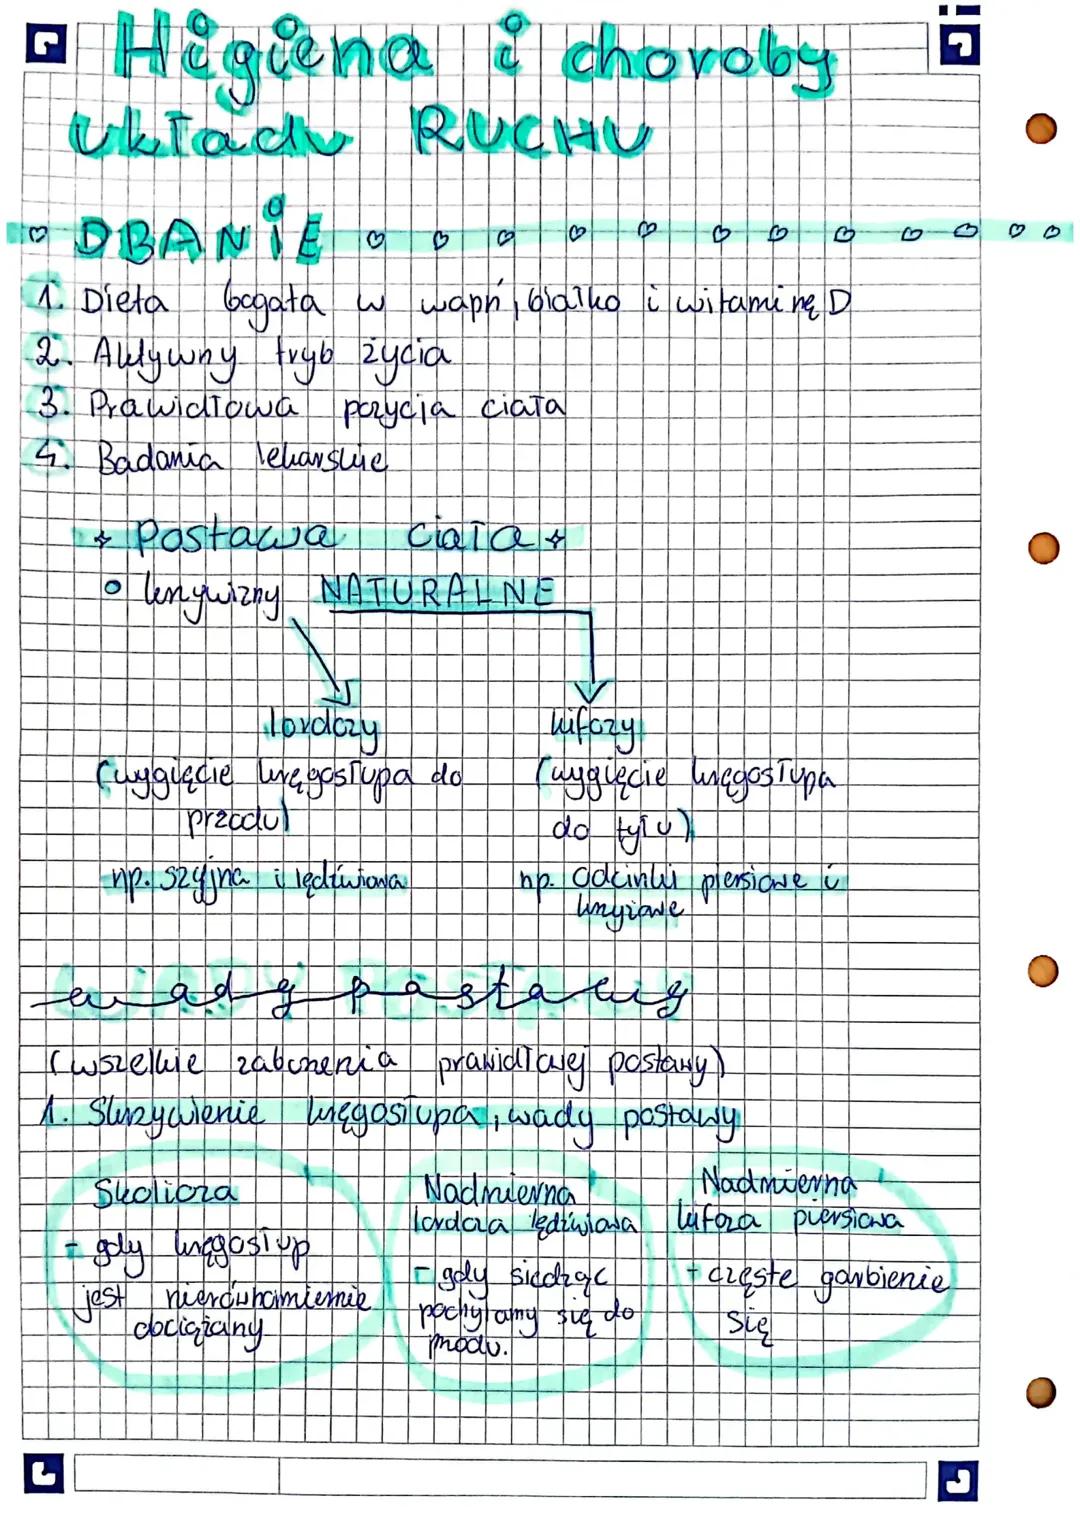 Higiena i choroby
układu RUCHU
DBANIE
1. Dieta bogata w wapń, białko i witaminę D
2. Aktywny tryb życia
3. Prawidłowa pozycja ciała
4. Badania lekarskie
Postawa ciała
krzywizny NATURALNE
lordozy kifozy
(wygięcie kręgosłupa do (wygięcie kręgosłupa
przodu) do tyłu)
np. szyjna i lędźwiowa np. odcinki piersiowe i
krzyżowe
wady postawy
(wszelkie zaburzenia prawidłowej postawy)
1. Skrzywienie kręgosłupa, wady postawy
Skolioza
- gdy kręgosłup
jest nierównomiernie
dociążany
Nadmierna
lordoza lędźwiowa
- gdy siedząc
pochylamy się do
przodu.
Nadmierna
kifoza piersiowa
- częste garbienie
się